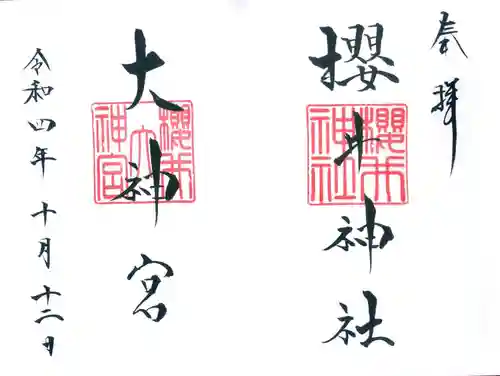 奉拝
櫻井神社
櫻井
神社
大神宮
櫻井
大
神宮
令和四年十月十二日